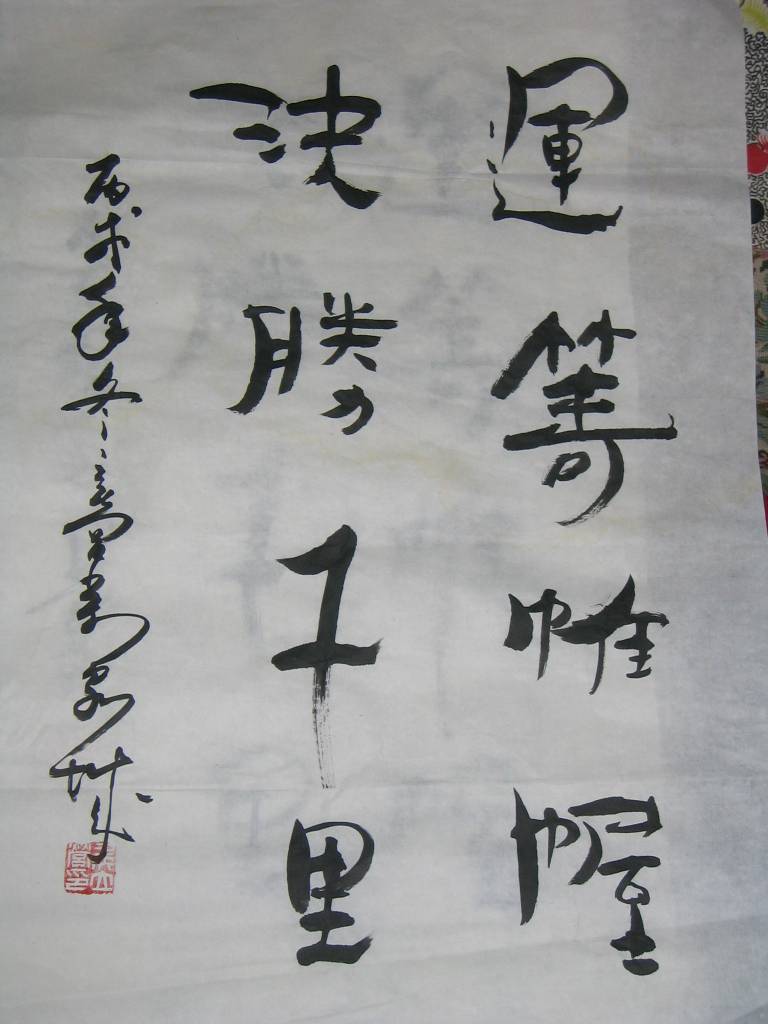 運籌帷幄
決勝千里
丙戌年冬